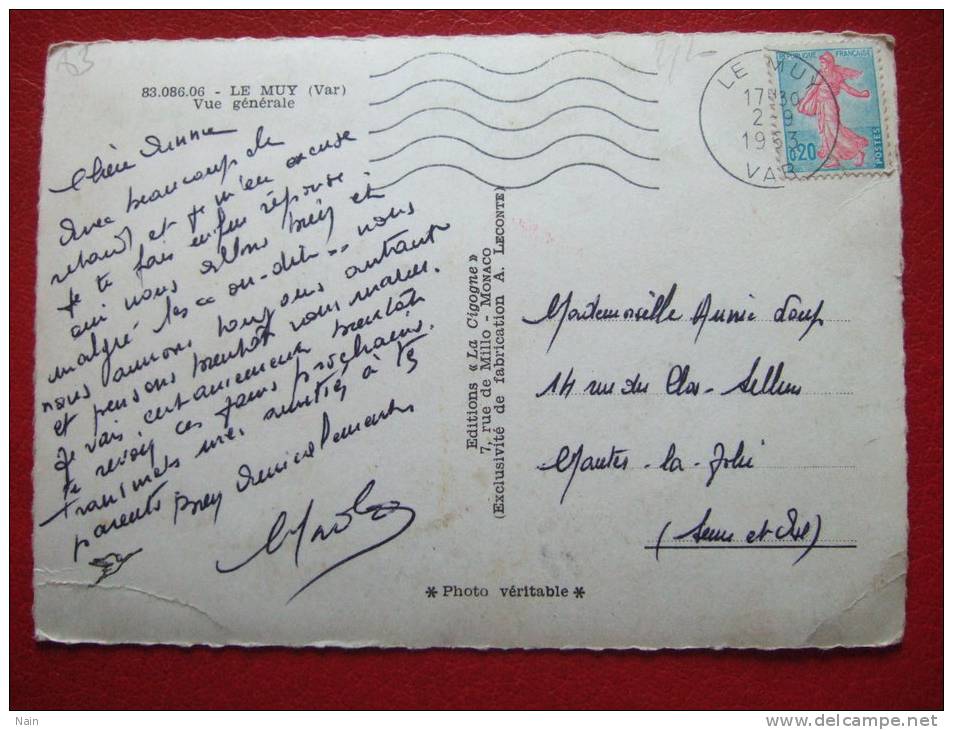 83.086.06 - LE MUY (Var)
Vue générale
Chère Annie
Avec beaucoup de
retard et je m'en excuse
je te fais enfin réponse.
oui nous allons bien et
malgré les "on-dit" nous
nous aimons toujours autant
et pensons bientôt nous marier.
Je vais certainement bientôt
te revoir ces jours prochains.
transmets mes amitiés à tes
parents Bien Amicalement
Editions « La Cigogne »
7, rue de Millo - MONACO
(Exclusivité de fabrication A. LECONTE)
* Photo véritable *
LE MUY
17 30
2 9
19 3
VAR
REPUBLIQUE FRANÇAISE
0,20
POSTES
Mademoiselle Annie
14 rue du Clos-
Mantes-la-Jolie
(Seine et Oise)
Nain
www.delcampe.net